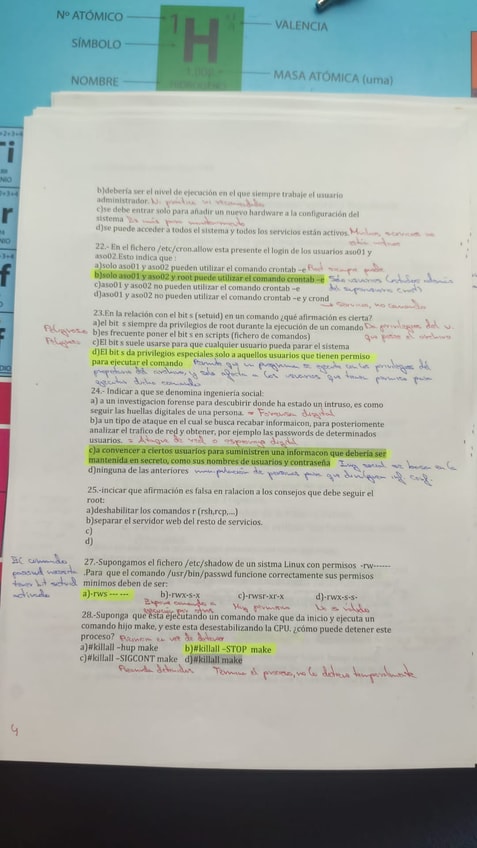 Nº ATÓMICO
1
H
VALENCIA
SÍMBOLO
NOMBRE
MASA ATÓMICA (uma)
b)debería ser el nivel de ejecución en el que siempre trabaje el usuario
administrador.
c)se debe entrar solo para añadir un nuevo hardware a la configuración del
sistema
d)se puede acceder a todos el sistema y todos los servicios están activos
22.- En el fichero /etc/cron.allow esta presente el login de los usuarios aso01 y
aso02.Esto indica que :
a)solo aso01 y aso02 pueden utilizar el comando crontab –e Root siempre puede
b)solo aso01 y aso02 y root puede utilizar el comando crontab –e
c)aso01 y aso02 no pueden utilizar el comando crontab –e
d)aso01 y aso02 no pueden utilizar el comando crontab –e y crond
→ servicio, no comando
23.En la relación con el bit s (setuid) en un comando ¿qué afirmación es cierta?
a)el bit s siempre da privilegios de root durante la ejecución de un comando Da privilegios del u.
que posee el archivo
b)es frecuente poner el bit s en scripts (fichero de comandos)
Peligroso
c)El bit s suele usarse para que cualquier usuario pueda parar el sistema
Peligroso
d)El bit s da privilegios especiales solo a aquellos usuarios que tienen permiso
para ejecutar el comando
24.- Indicar a que se denomina ingeniería social:
a) a un investigacion forense para descubrir donde ha estado un intruso, es como
seguir las huellas digitales de una persona. → Forense digital
b)a un tipo de ataque en el cual se busca recabar informaicon, para posteriormente
analizar el trafico de red y obtener, por ejemplo las passwords de determinados
usuarios. → Ataque de red o espionaje digital
c)a convencer a ciertos usuarios para suministren una informacon que debería ser
mantenida en secreto, como sus nombres de usuarios y contraseña Ing social se basa en la
d)ninguna de las anteriores manipulación de personas para que divulguen inf. conf.
25.-incicar que afirmación es falsa en ralacion a los consejos que debe seguir el
root:
a)deshabilitar los comandos r (rsh,rcp,...)
b)separar el servidor web del resto de servicios.
c)
d)
El comando
passwd necesita
tener bit setuid
activado
27.-Supongamos el fichero /etc/shadow de un sistma Linux con permisos -rw------
.Para que el comando /usr/bin/passwd funcione correctamente sus permisos
minimos deben de ser:
a)-rws --- --- b)-rwx-s-x c)-rwsr-xr-x d)-rwx-s-s-
28.-Suponga que esta ejecutando un comando make que da inicio y ejecuta un
comando hijo make, y este esta desestabilizando la CPU. ¿cómo puede detener este
proceso?
a)#killall –hup make b)#killall –STOP make
c)#killall –SIGCONT make d)#killall make
Reanuda detenidos Termina el proceso, no lo detiene temporalmente
4